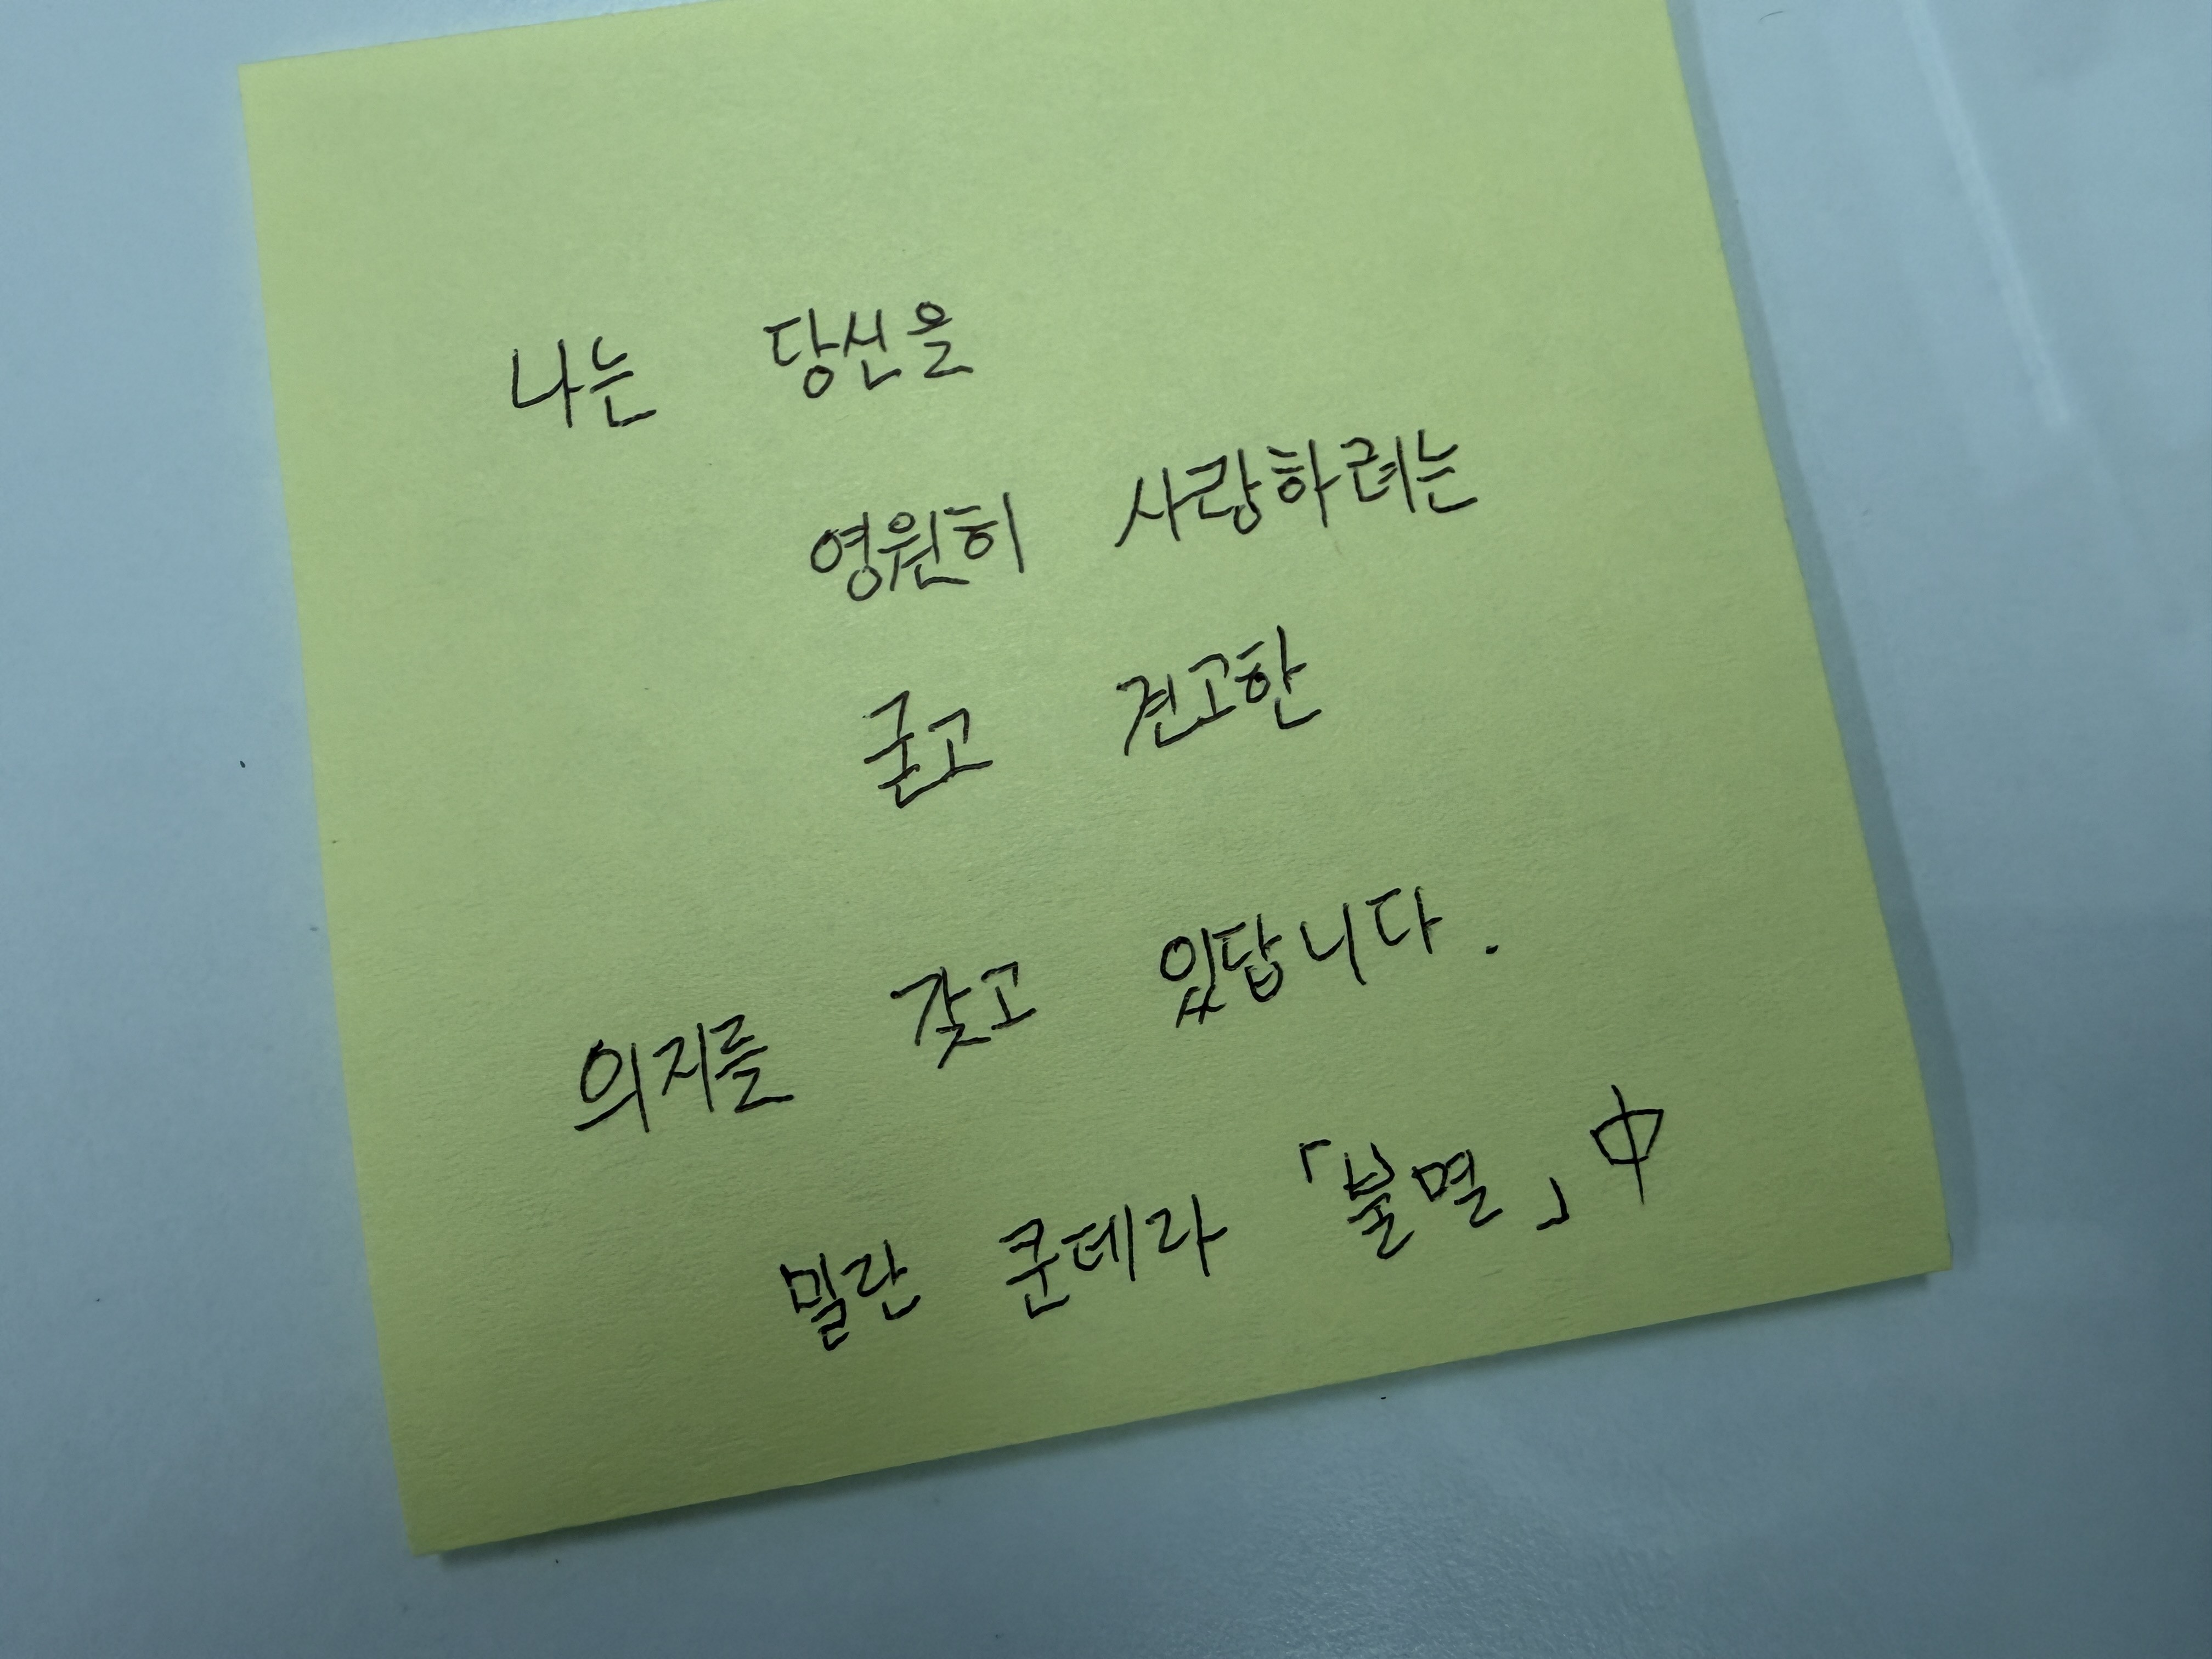 나는 당신을
영원히 사랑하려는
굳고 견고한
의지를 갖고 있답니다.
밀란 쿤데라 「불멸」 中